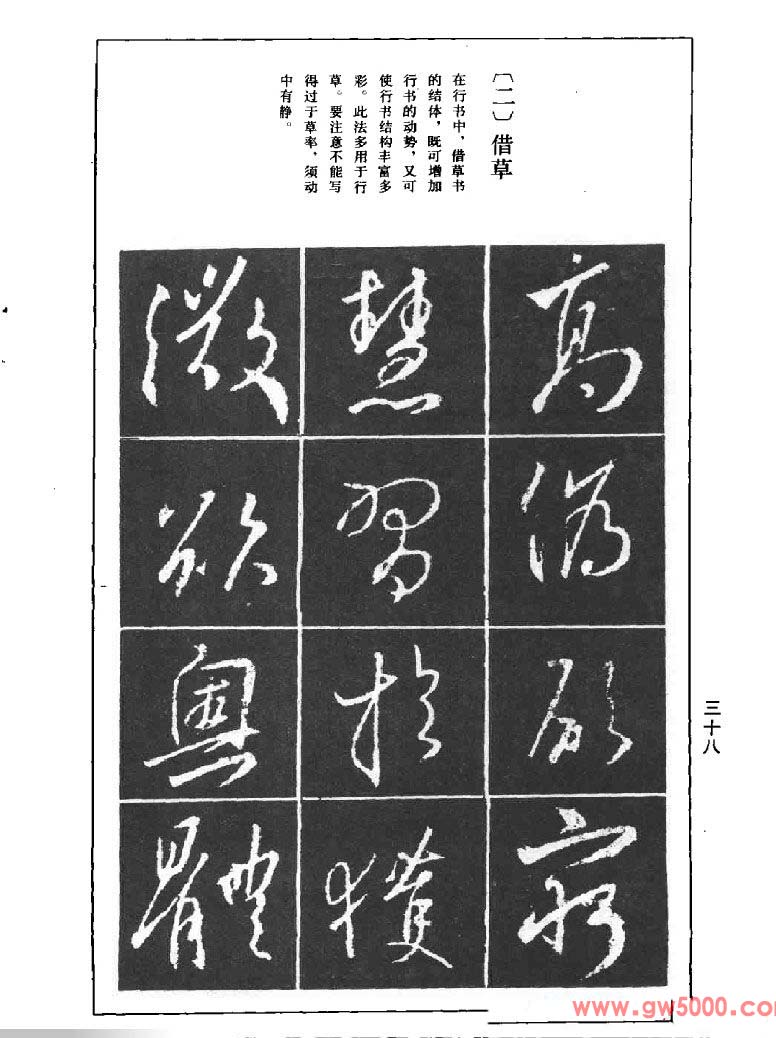 〔二〕借草
在行书中，借草书
的结体，既可增加
行书的动势，又可
使行书结构丰富多
彩。此法多用于行
草。要注意不能写
得过于草率，须动
中有静。
高偽窮
慧習於獲
微欲奧體
三十八
www.gw5000.com